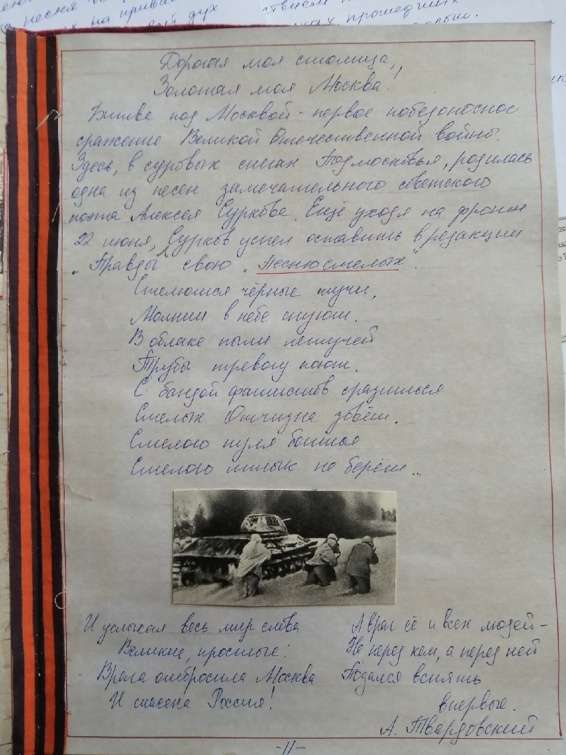 Дорогая моя столица,
Золотая моя Москва!
Битва под Москвой - первое победоносное
сражение Великой Отечественной войны.
Здесь, в суровых снегах Подмосковья, родилась
одна из песен замечательного советского
поэта Алексея Суркова. Ещё уходя на фронт
22 июня, Сурков успел оставить в редакции
„Правды" свою „Песню смелых".
Стелются чёрные тучи,
Молнии в небе снуют.
В облаке пыли летучей
Трубы тревогу поют.
С бандой фашистов сразиться
Смелых Отчизна зовёт.
Смелого пуля боится
Смелого штык не берёт..
И услыхал весь мир слова
Великие, простые:
Врага отбросила Москва
И спасена Россия!
А враг её и всех людей -
Не перед кем, а перед ней
Подался вспять
впервые.
А. Твардовский
-11-